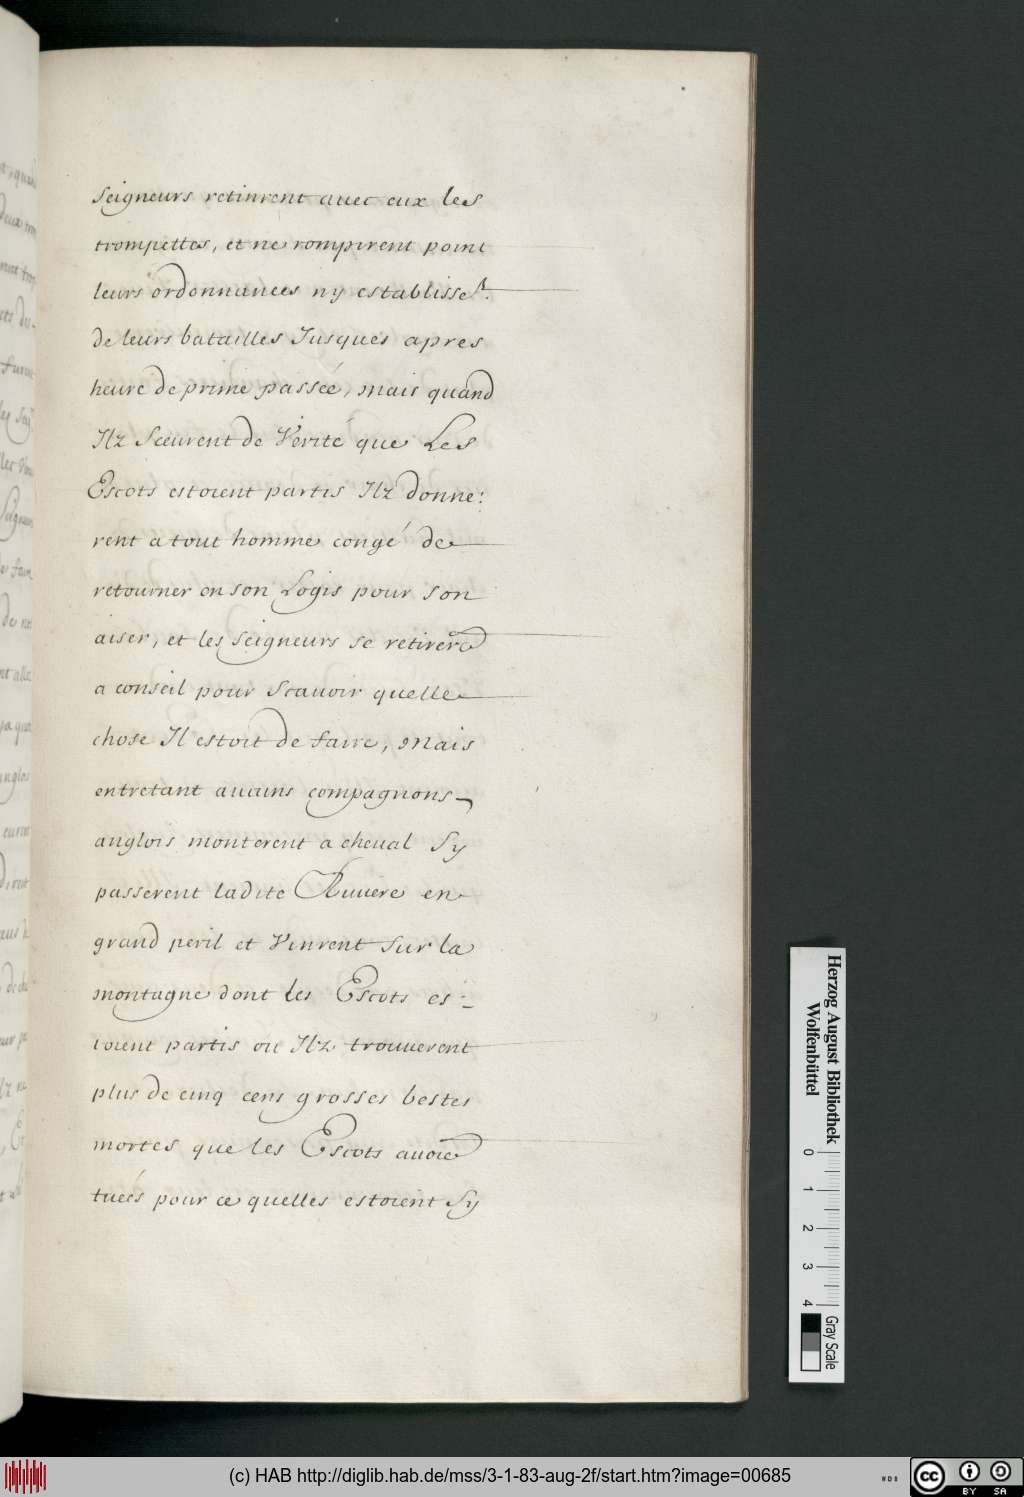 Seigneurs retinrent auec eux les
trompettes, et ne rompirent point
leurs ordonnances ny establisse.t
de leurs batailles Jusques apres
heure de prime passeé, mais quand
Ilz Sceurent de Verité que Les
Escots estoient partis Ilz donne:
rent a tout homme congé de
retourner en son Logis pour son
aiser, et les Seigneurs se retirerẽ
a conseil pour Scauoir quelle
chose Il estoit de faire, Mais
entretant aucuns compagnons
anglois monterent a cheual Sy
passerent ladite Riuiere en
grand peril et Vinrent Sur la
montagne dont les Escots es:
toient partis ou Ilz trouuerent
plus de cinq cens grosses bestes
mortes que les Escots auoiẽ
tueés pour ce quelles estoient Sy
Herzog August Bibliothek
Wolfenbüttel
0 1 2 3 4
Gray Scale
(c) HAB http://diglib.hab.de/mss/3-1-83-aug-2f/start.htm?image=00685
cc BY SA